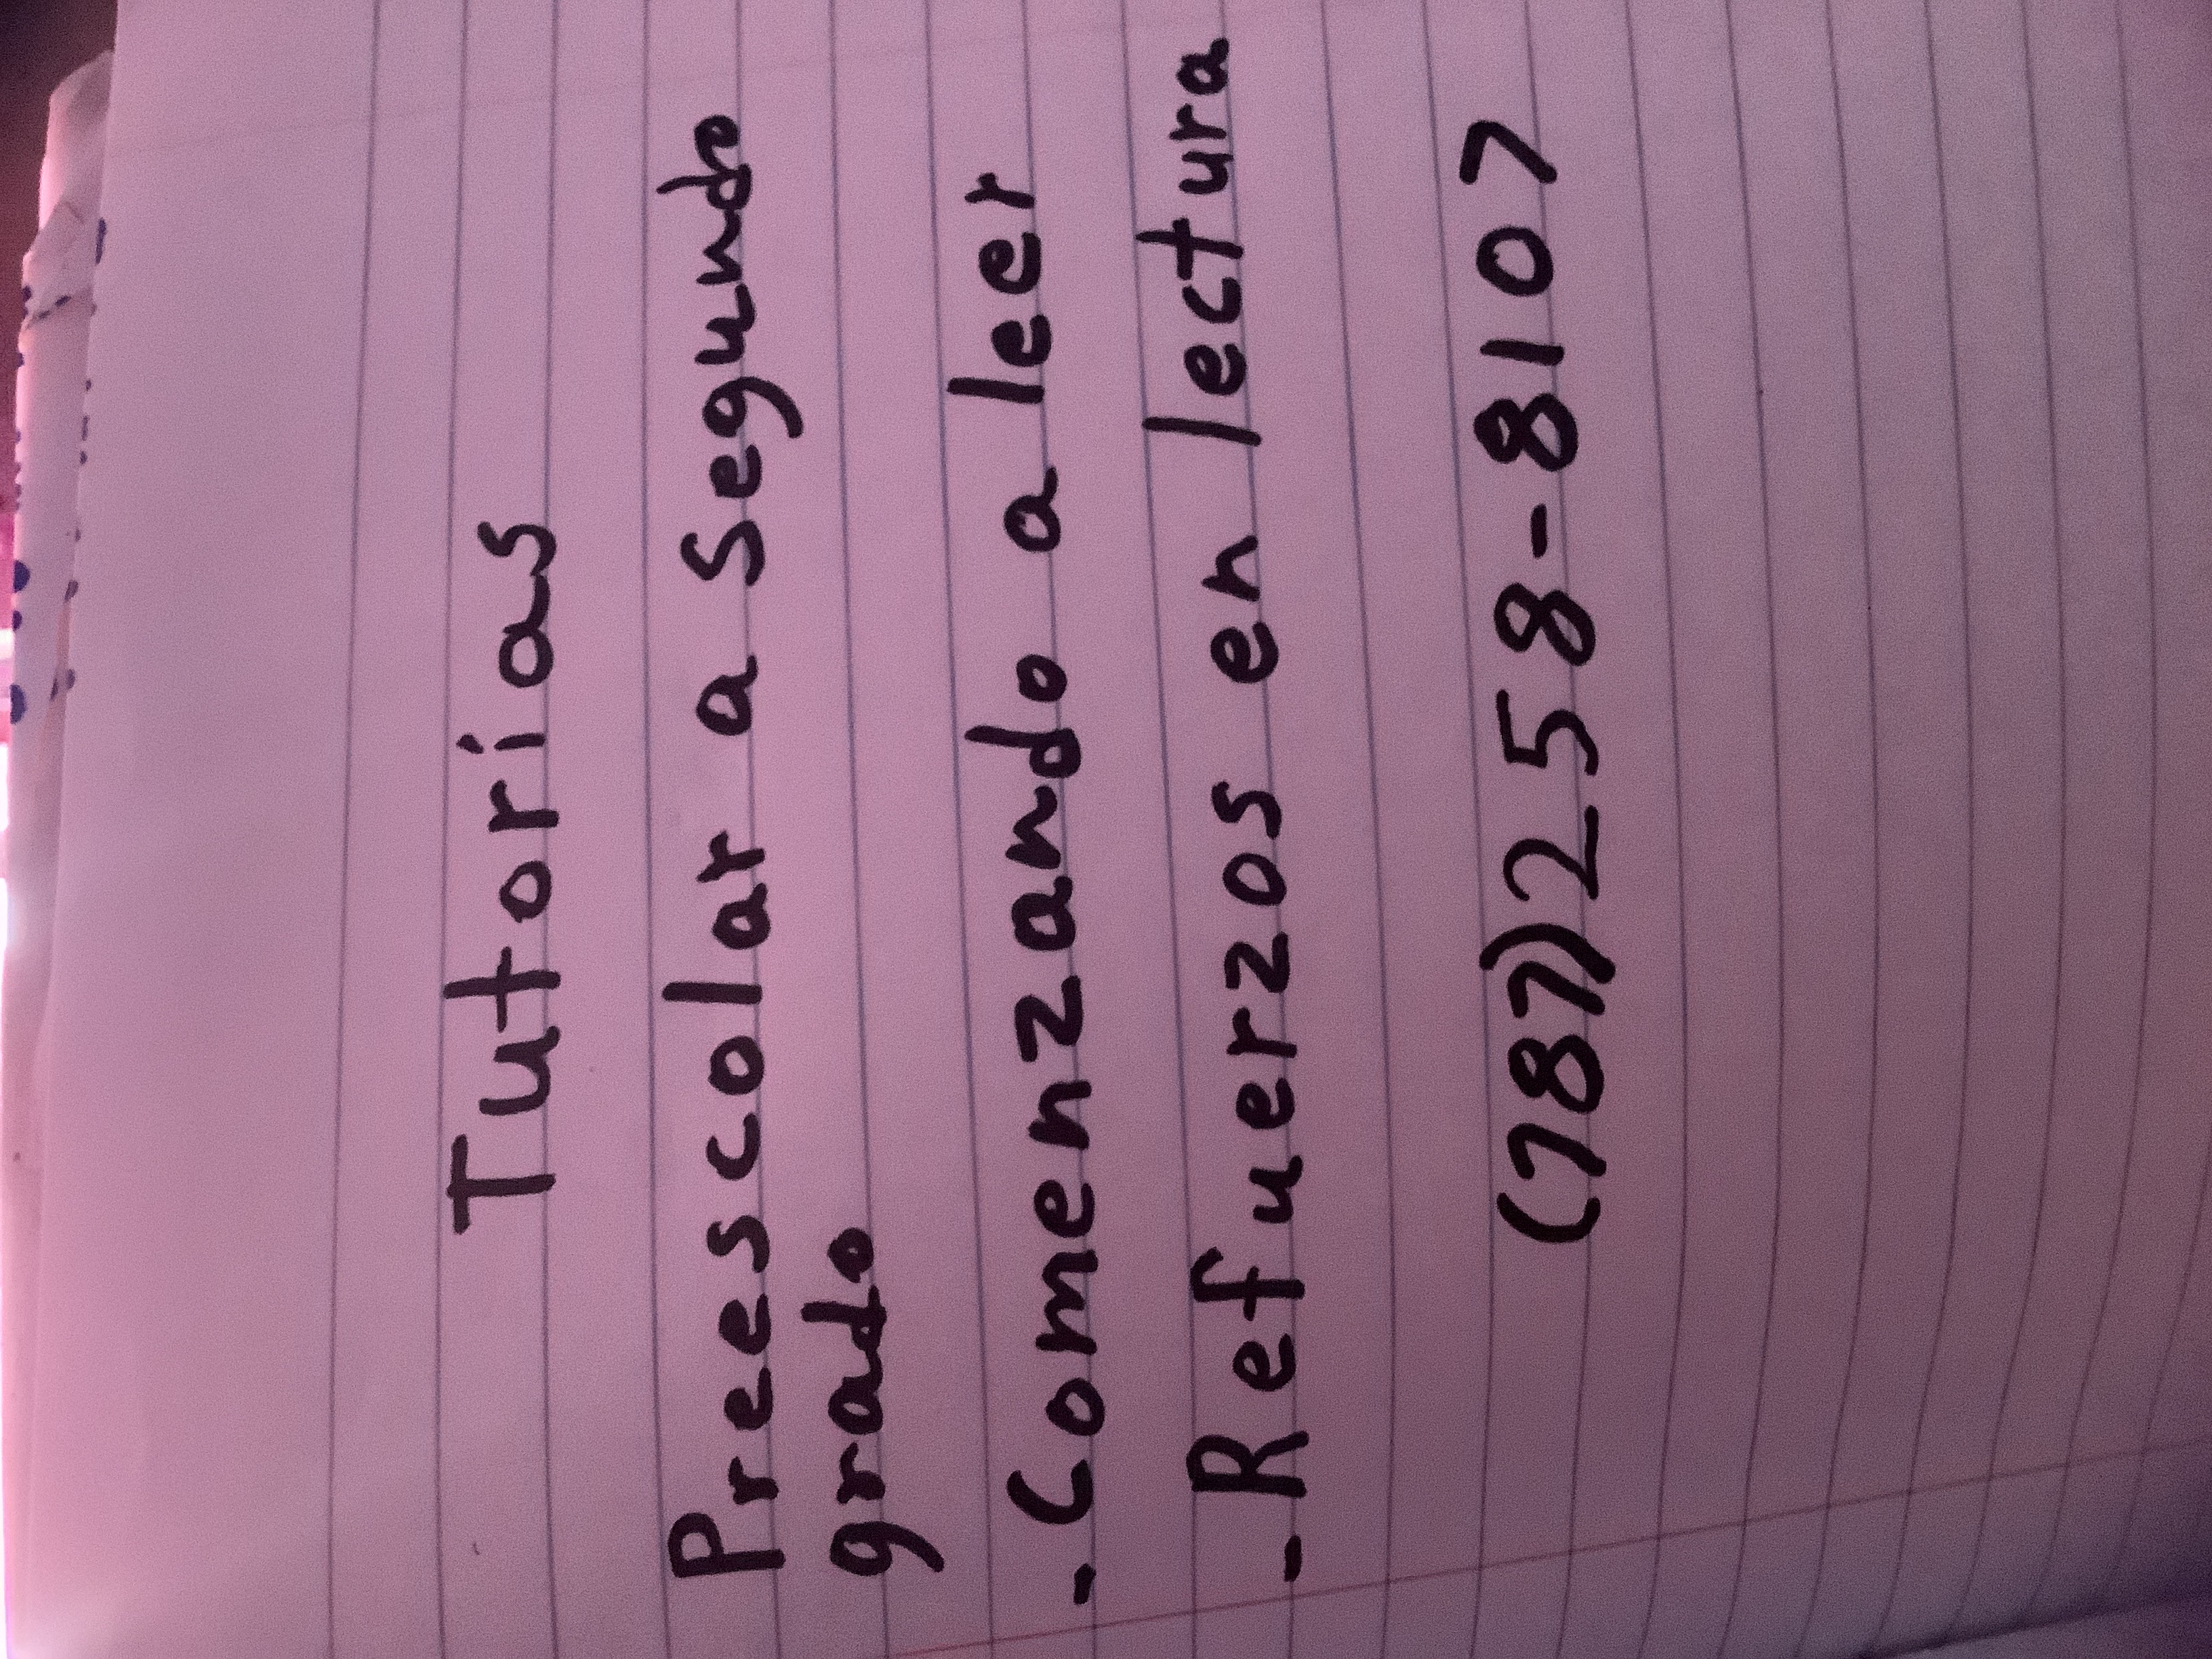 Tutorias
Preescolar a Segundo
grado
- Comenzando a leer
- Refuerzos en lectura
(787)258-8107